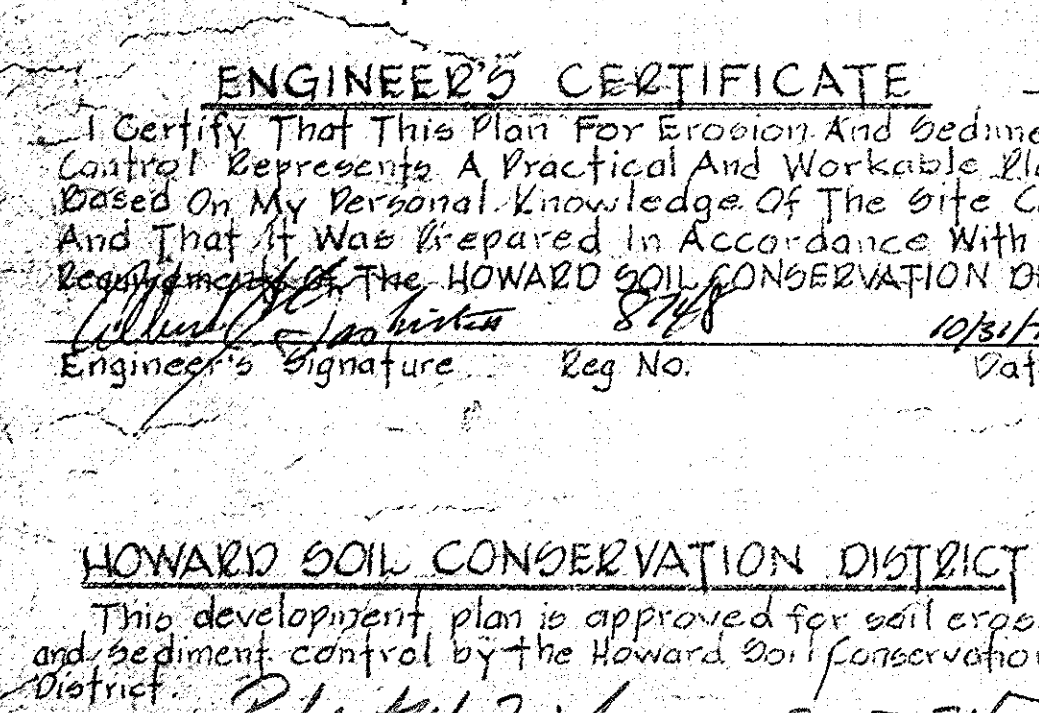 ENGINEER'S CERTIFICATE
I Certify That This Plan For Erosion And Sedime
Control Represents A Practical And Workable Pla
Based On My Personal Knowledge Of The Site C
And That It Was Prepared In Accordance With
Requirments Of The HOWARD SOIL CONSERVATION DI
8748 10/31/7
Engineer's Signature Reg No. Dat
HOWARD SOIL CONSERVATION DISTRICT
This development plan is approved for soil eros
and sediment control by the Howard Soil Conservation
District.